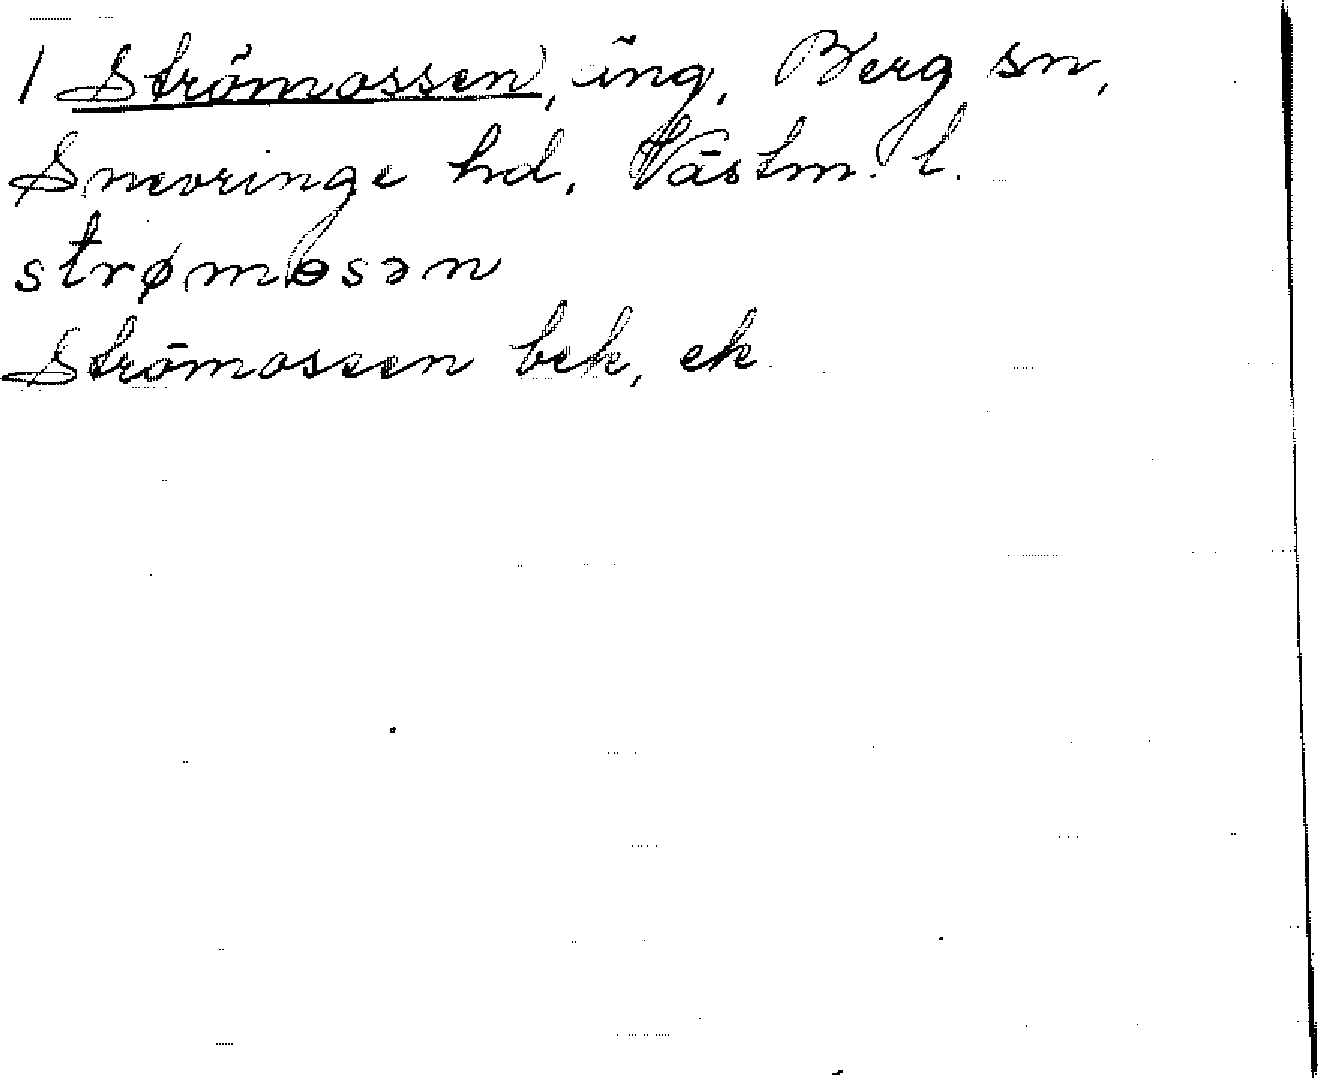 1 Strömossen, äng, Berg sn,
Snevringe hd, Västm. l.
strømɵsən
Strömossen bek, ek